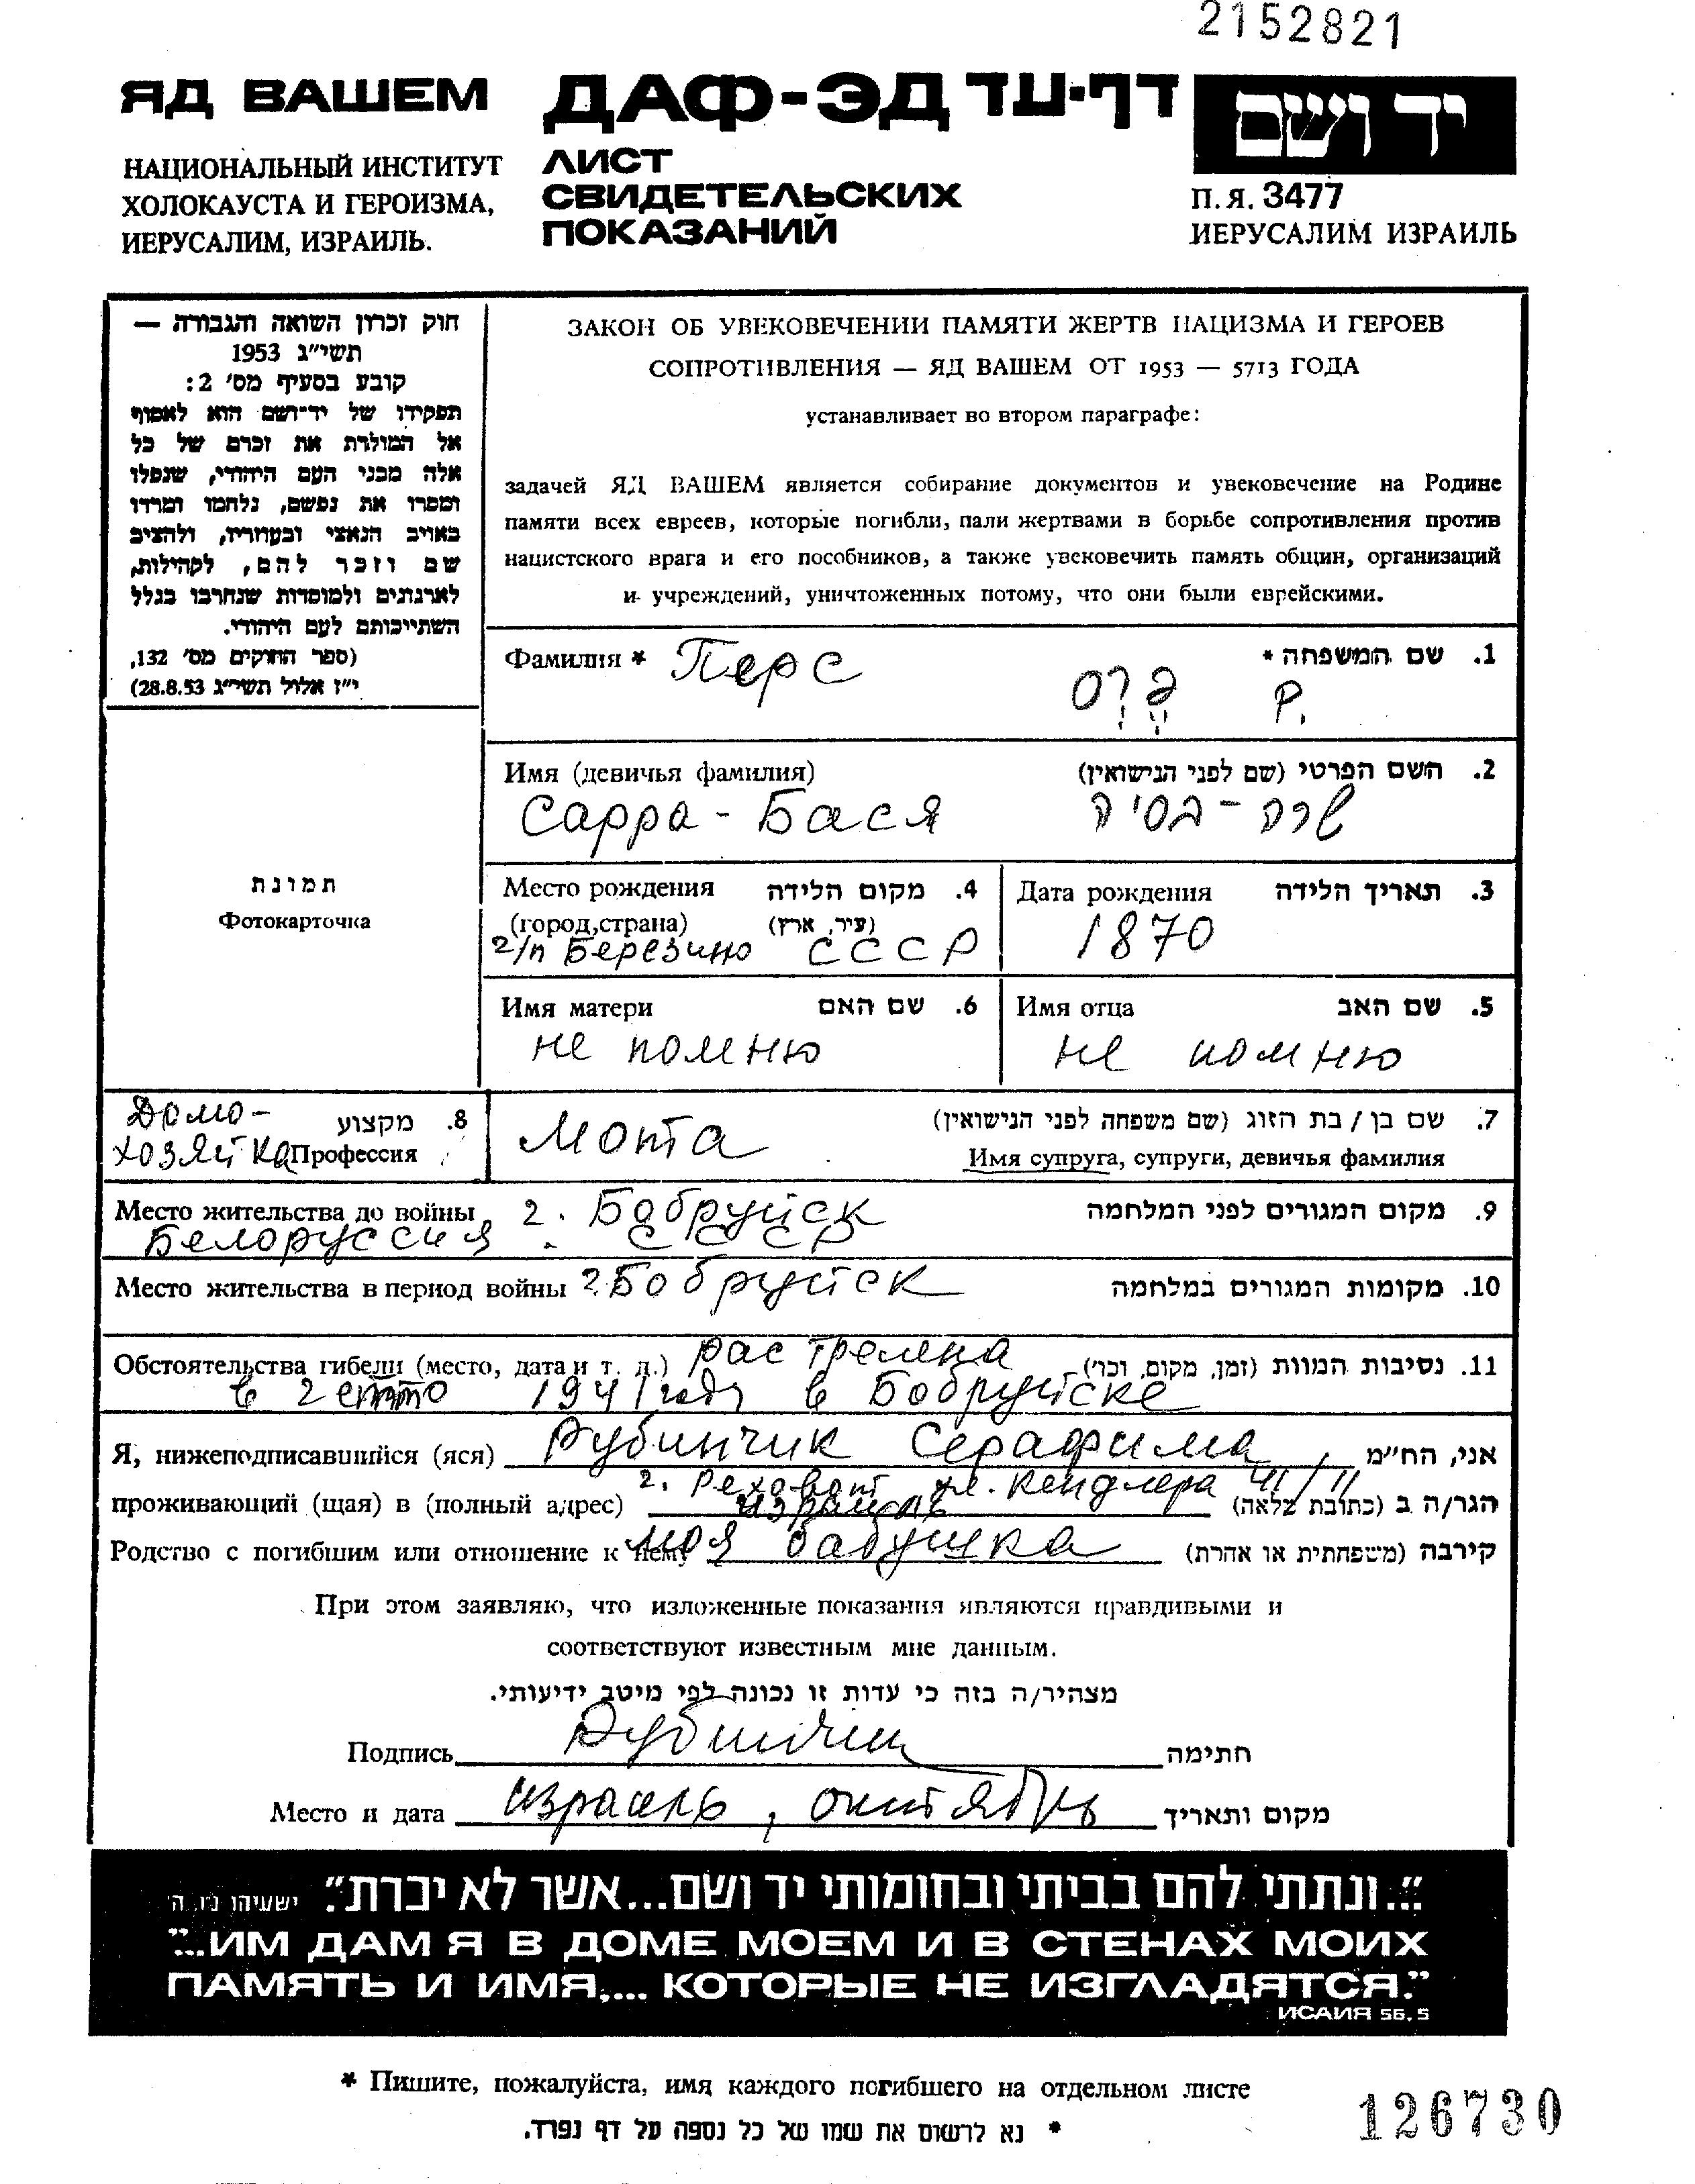 2152821
ЯД ВАШЕМ
НАЦИОНАЛЬНЫЙ ИНСТИТУТ
ХОЛОКАУСТА И ГЕРОИЗМА,
ИЕРУСАЛИМ, ИЗРАИЛЬ.
ДАФ-ЭД דף-עד
ЛИСТ
СВИДЕТЕЛЬСКИХ
ПОКАЗАНИЙ
יד ושם
П.Я. 3477
ИЕРУСАЛИМ ИЗРАИЛЬ
חוק זכרון השואה והגבורה —
תשי"ג 1953
קובע בסעיף מס' 2:
תפקידו של יד-ושם הוא לאסוף
אל המולדת את זכרם של כל
אלה מבני העם היהודי, שנפלו
ומסרו את נפשם, נלחמו ומרדו
באויב הנאצי ובעוזריו, ולהציב
שם וזכר להם, לקהילות,
לארגונים ולמוסדות שנחרבו בגלל
השתייכותם לעם היהודי.
(ספר החוקים מס' 132,
י"ז אלול תשי"ג 28.8.53)
ЗАКОН ОБ УВЕКОВЕЧЕНИИ ПАМЯТИ ЖЕРТВ НАЦИЗМА И ГЕРОЕВ
СОПРОТИВЛЕНИЯ — ЯД ВАШЕМ ОТ 1953 — 5713 ГОДА
устанавливает во втором параграфе:
задачей ЯД ВАШЕМ является собирание документов и увековечение на Родине
памяти всех евреев, которые погибли, пали жертвами в борьбе сопротивления против
нацистского врага и его пособников, а также увековечить память общин, организаций
и учреждений, уничтоженных потому, что они были еврейскими.
Фамилия * Перс
1. שם המשפחה *
פרס
Имя (девичья фамилия)
2. השם הפרטי (שם לפני הנישואין)
Сарра - Бася
שרה - בסיה
תמונת
Фотокарточка
Место рождения 4. מקום הלידה
(город,страна) (עיר, ארץ)
г/п Березино СССР
Дата рождения 3. תאריך הלידה
1870
Имя матери 6. שם האם
не помню
Имя отца 5. שם האב
не помню
Домо-
хозяйка
8. מקצוע
Профессия
Монта
7. שם בן / בת הזוג (שם משפחה לפני הנישואין)
Имя супруга, супруги, девичья фамилия
Место жительства до войны г. Бобруйск 9. מקום המגורים לפני המלחמה
Белоруссия СССР
Место жительства в период войны г. Бобруйск 10. מקומות המגורים במלחמה
Обстоятельства гибели (место, дата и т. д.) растрелена 11. נסיבות המוות (זמן, מקום, וכו')
в гетто 1941 году в Бобруйске
Я, нижеподписавшийся (яся) Рубинчик Серафима אני, הח"מ
проживающий (щая) в (полный адрес) г. Реховот ул. Кендлера 41/11 הגר/ה ב (כתובת מלאה)
Израиль
Родство с погибшим или отношение к нему моя бабушка קירבה (משפחתית או אחרת)
При этом заявляю, что изложенные показания являются правдивыми и
соответствуют известным мне данным.
מצהיר/ה בזה כי עדות זו נכונה לפי מיטב ידיעותי.
Подпись Рубинчик חתימה
Место и дата Израиль, октябрь מקום ותאריך
"...ונתתי להם בביתי ובחומותי יד ושם...אשר לא יכרת". ישעיהו נ"ו, ה'
"...ИМ ДАМ Я В ДОМЕ МОЕМ И В СТЕНАХ МОИХ
ПАМЯТЬ И ИМЯ,... КОТОРЫЕ НЕ ИЗГЛАДЯТСЯ."
ИСАИЯ 56.5
* Пишите, пожалуйста, имя каждого погибшего на отдельном листе
* נא לרשום את שמו של כל נספה על דף נפרד.
126730